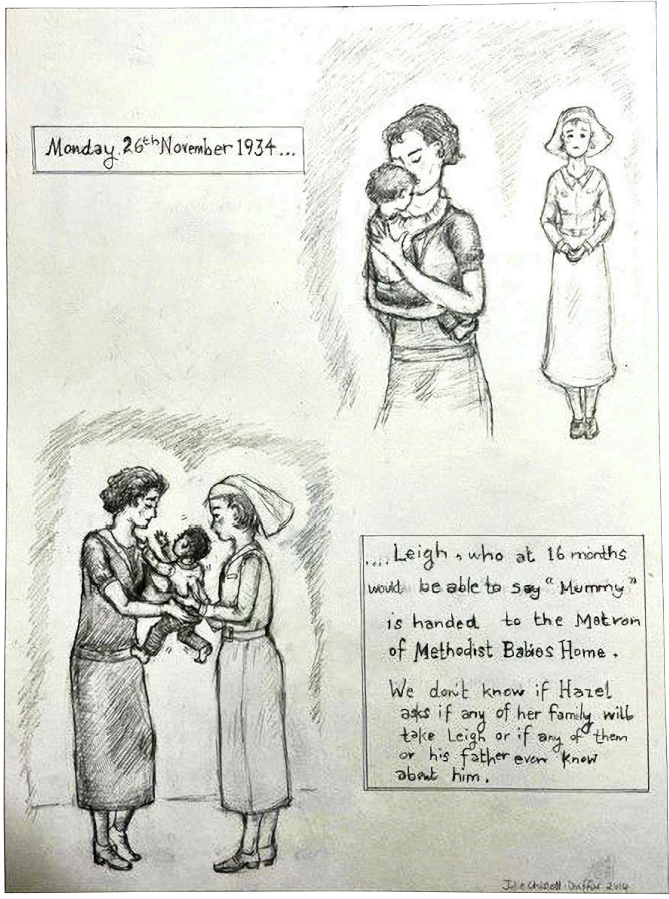 Monday. 26th November 1934...
....Leigh, who at 16 months
would be able to say "Mummy"
is handed to the Matron
of Methodist Babies Home.
We don't know if Hazel
asks if any of her family will
take Leigh or if any of them
or his father even know
about him.
2014